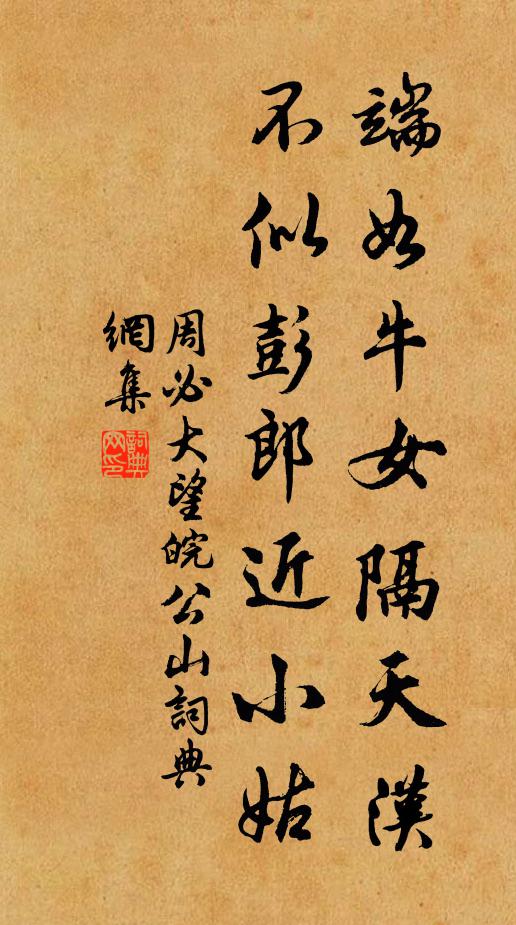 端如牛女隔天漢
不似彭郎近小姑
周必大望皖公山詞典
網集
詞典
网印